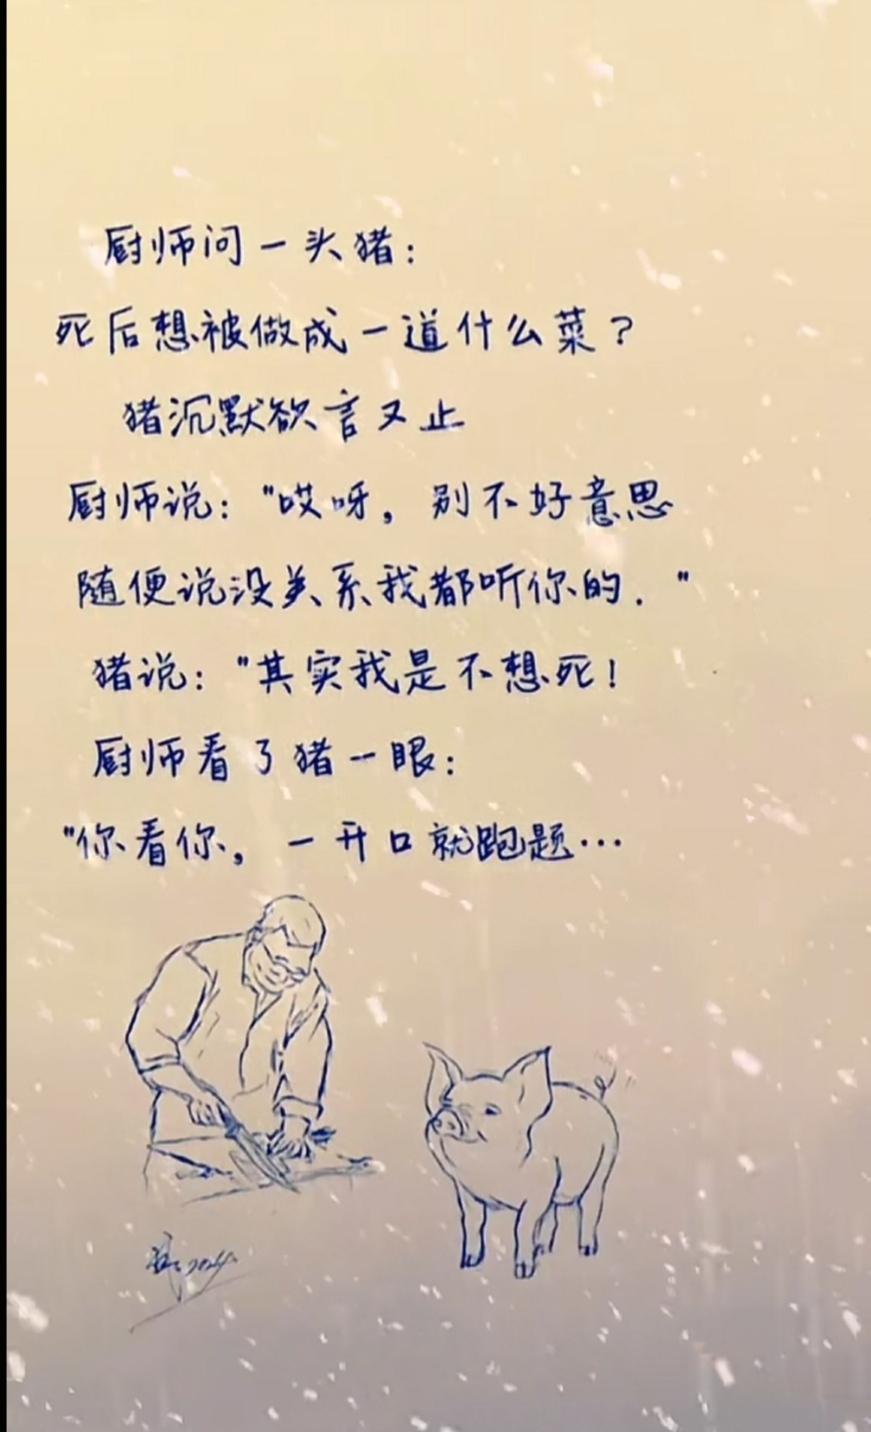 厨师问一头猪：
死后想被做成一道什么菜？
猪沉默欲言又止
厨师说："哎呀，别不好意思
随便说没关系我都听你的．"
猪说："其实我是不想死！
厨师看了猪一眼：
"你看你，一开口就跑题…
2024